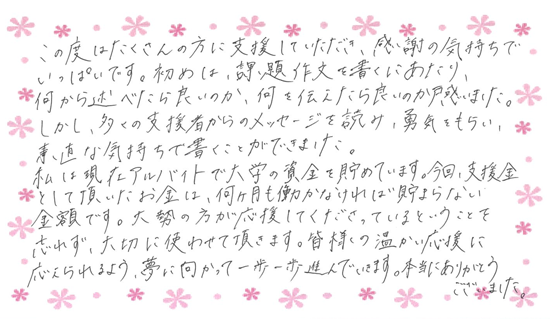 この度はたくさんの方に支援していただき、感謝の気持ちで
いっぱいです。初めは、課題作文を書くにあたり、
何から述べたら良いのか、何を伝えたら良いのか戸惑いました。
しかし、多くの支援者からのメッセージを読み、勇気をもらい、
素直な気持ちで書くことができました。
私は現在アルバイトで大学の資金を貯めています。今回、支援金
として頂いたお金は、何ヶ月も働かなければ貯まらない
金額です。大勢の方が応援してくださっているということを
忘れず、大切に使わせて頂きます。皆様の温かい応援に
応えられるよう、夢に向かって一歩一歩進んでいきます。本当にありがとう
ございました。